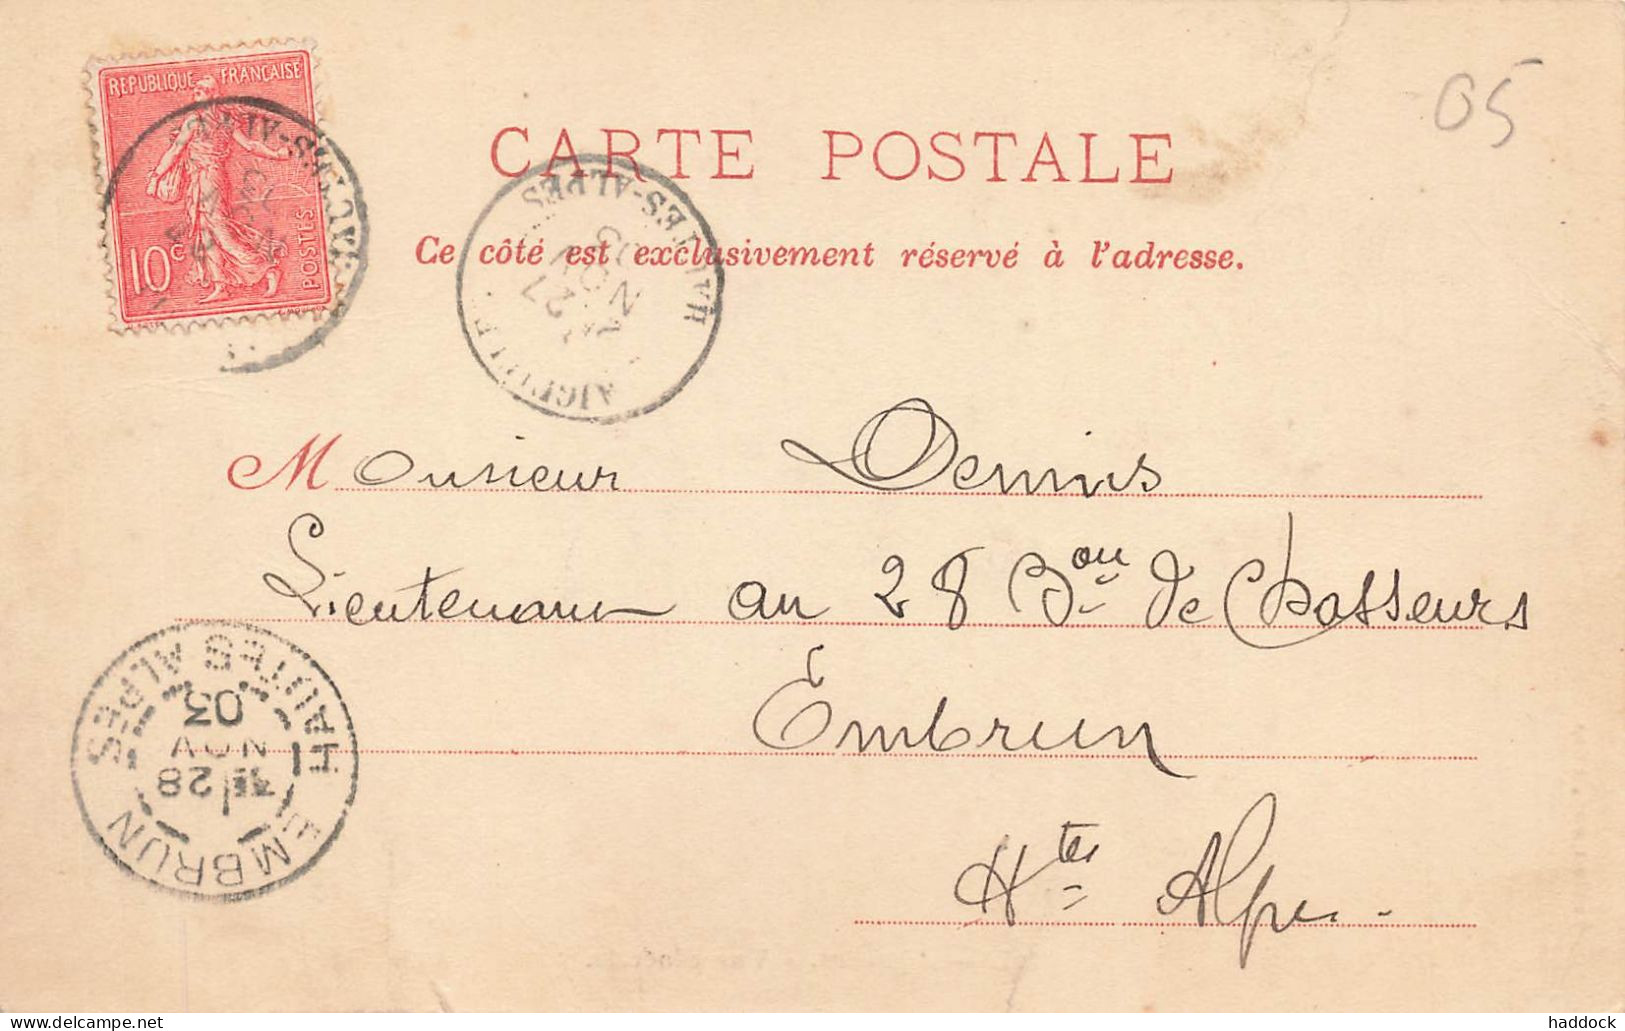 REPUBLIQUE FRANÇAISE
10c POSTES
05
CARTE POSTALE
HAUTES-ALPES
27
NOV
03
Ce côté est exclusivement réservé à l'adresse.
Monsieur Dennis
Lieutenant au 28 Bon de Chasseurs
Embrun
Htes Alpes
HAUTES ALPES
28
NOV
03
EMBRUN
haddock